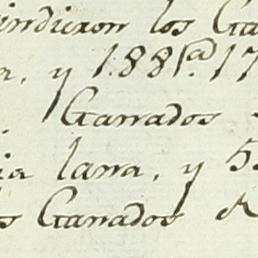 indieron los Ga
n, y 1.881@ 17
Ganados
ia lana, y 5
s Ganados d